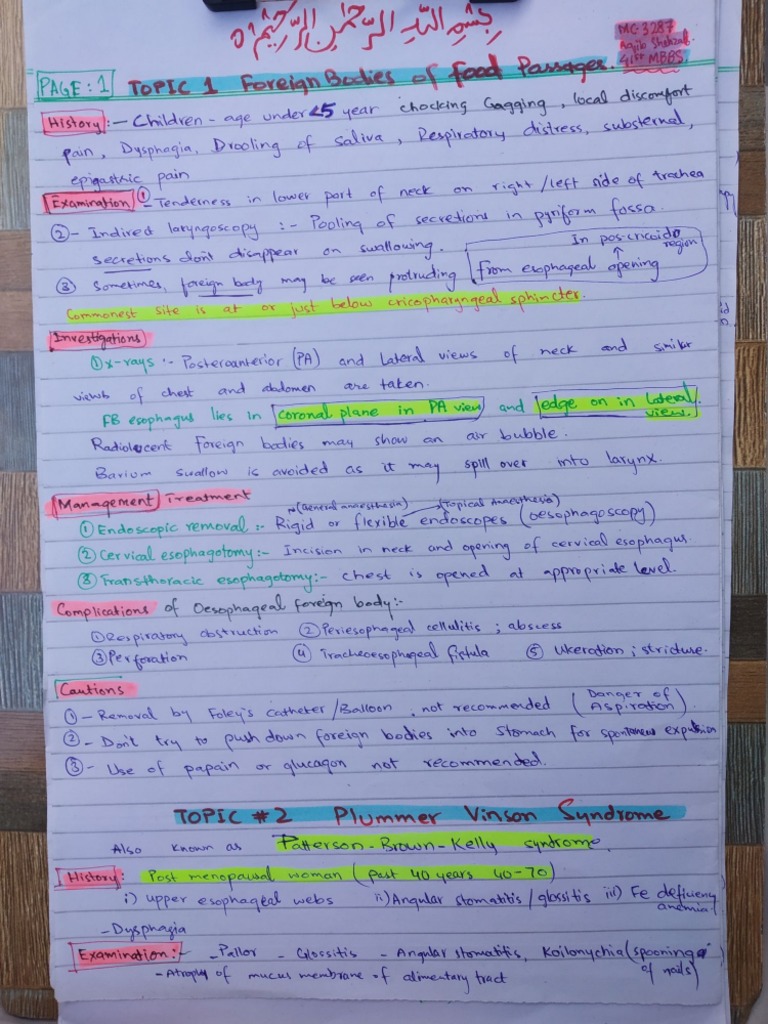 بسم الله الرحمن الرحيم
MC-3287
Aqib Shehzad
41st MBBS.
PAGE: 1
TOPIC 1 Foreign Bodies of Food Passages.
History :- Children - age under <5 year chocking Gagging, local discomfort
pain, Dysphagia, Drooling of saliva, Respiratory distress, substernal,
epigastric pain
Examination ①- Tenderness in lower part of neck on right/left side of trachea
②- Indirect laryngoscopy :- Pooling of secretions in pyriform fossa.
secretions don't disappear on swallowing.
In pos-cricoid region
③ Sometimes, foreign body may be seen protruding from esophageal opening
Commonest site is at or just below cricopharyngeal sphincter.
Investigations
① x-rays :- Posteroanterior (PA) and Lateral views of neck and similar
views of chest and abdomen are taken.
FB esophagus lies in coronal plane in PA view and edge on in Lateral view.
Radiolucent foreign bodies may show an air bubble.
Barium swallow is avoided as it may spill over into larynx.
Management Treatment
(General anaesthesia) (Topical Anaesthesia)
① Endoscopic removal :- Rigid or flexible endoscopes (oesophagoscopy)
② Cervical esophagotomy :- Incision in neck and opening of cervical esophagus.
③ Transthoracic esophagotomy :- Chest is opened at appropriate level.
Complications of Oesophageal foreign body :-
① Respiratory obstruction ② Periesophageal cellulitis ; abscess
③ Perforation ④ Tracheoesophageal fistula ⑤ Ulceration ; stricture.
Cautions
①- Removal by Foley's catheter/Balloon, not recommended (Danger of Aspiration)
②- Don't try to push down foreign bodies into stomach for expulsion
③- Use of papain or glucagon not recommended.
TOPIC #2 Plummer Vinson Syndrome
Also known as Patterson-Brown-Kelly syndrome.
History: Post menopausal woman (past 40 years 40-70)
i) upper esophageal webs ii) Angular stomatitis/glossitis iii) Fe deficiency anemia
- Dysphagia
Examination :- - Pallor - Glossitis - Angular stomatitis, Koilonychia (spooning of nails)
- Atrophy of mucus membrane of alimentary tract